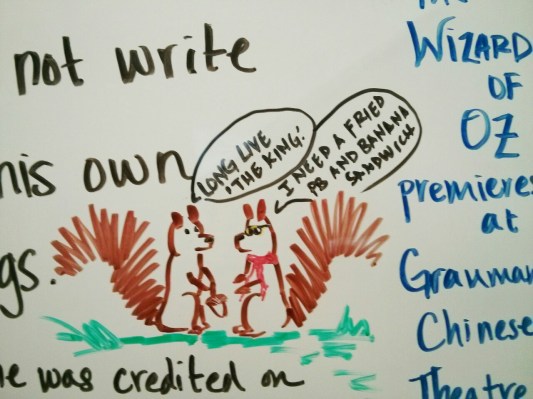 not write
his own
gs.
LONG LIVE
'THE KING.'
I NEED A FRIED
PB AND BANANA
SANDWICH
he was credited on
WIZARD
OF
OZ
premieres
at
Grauman
Chinese
Theatre